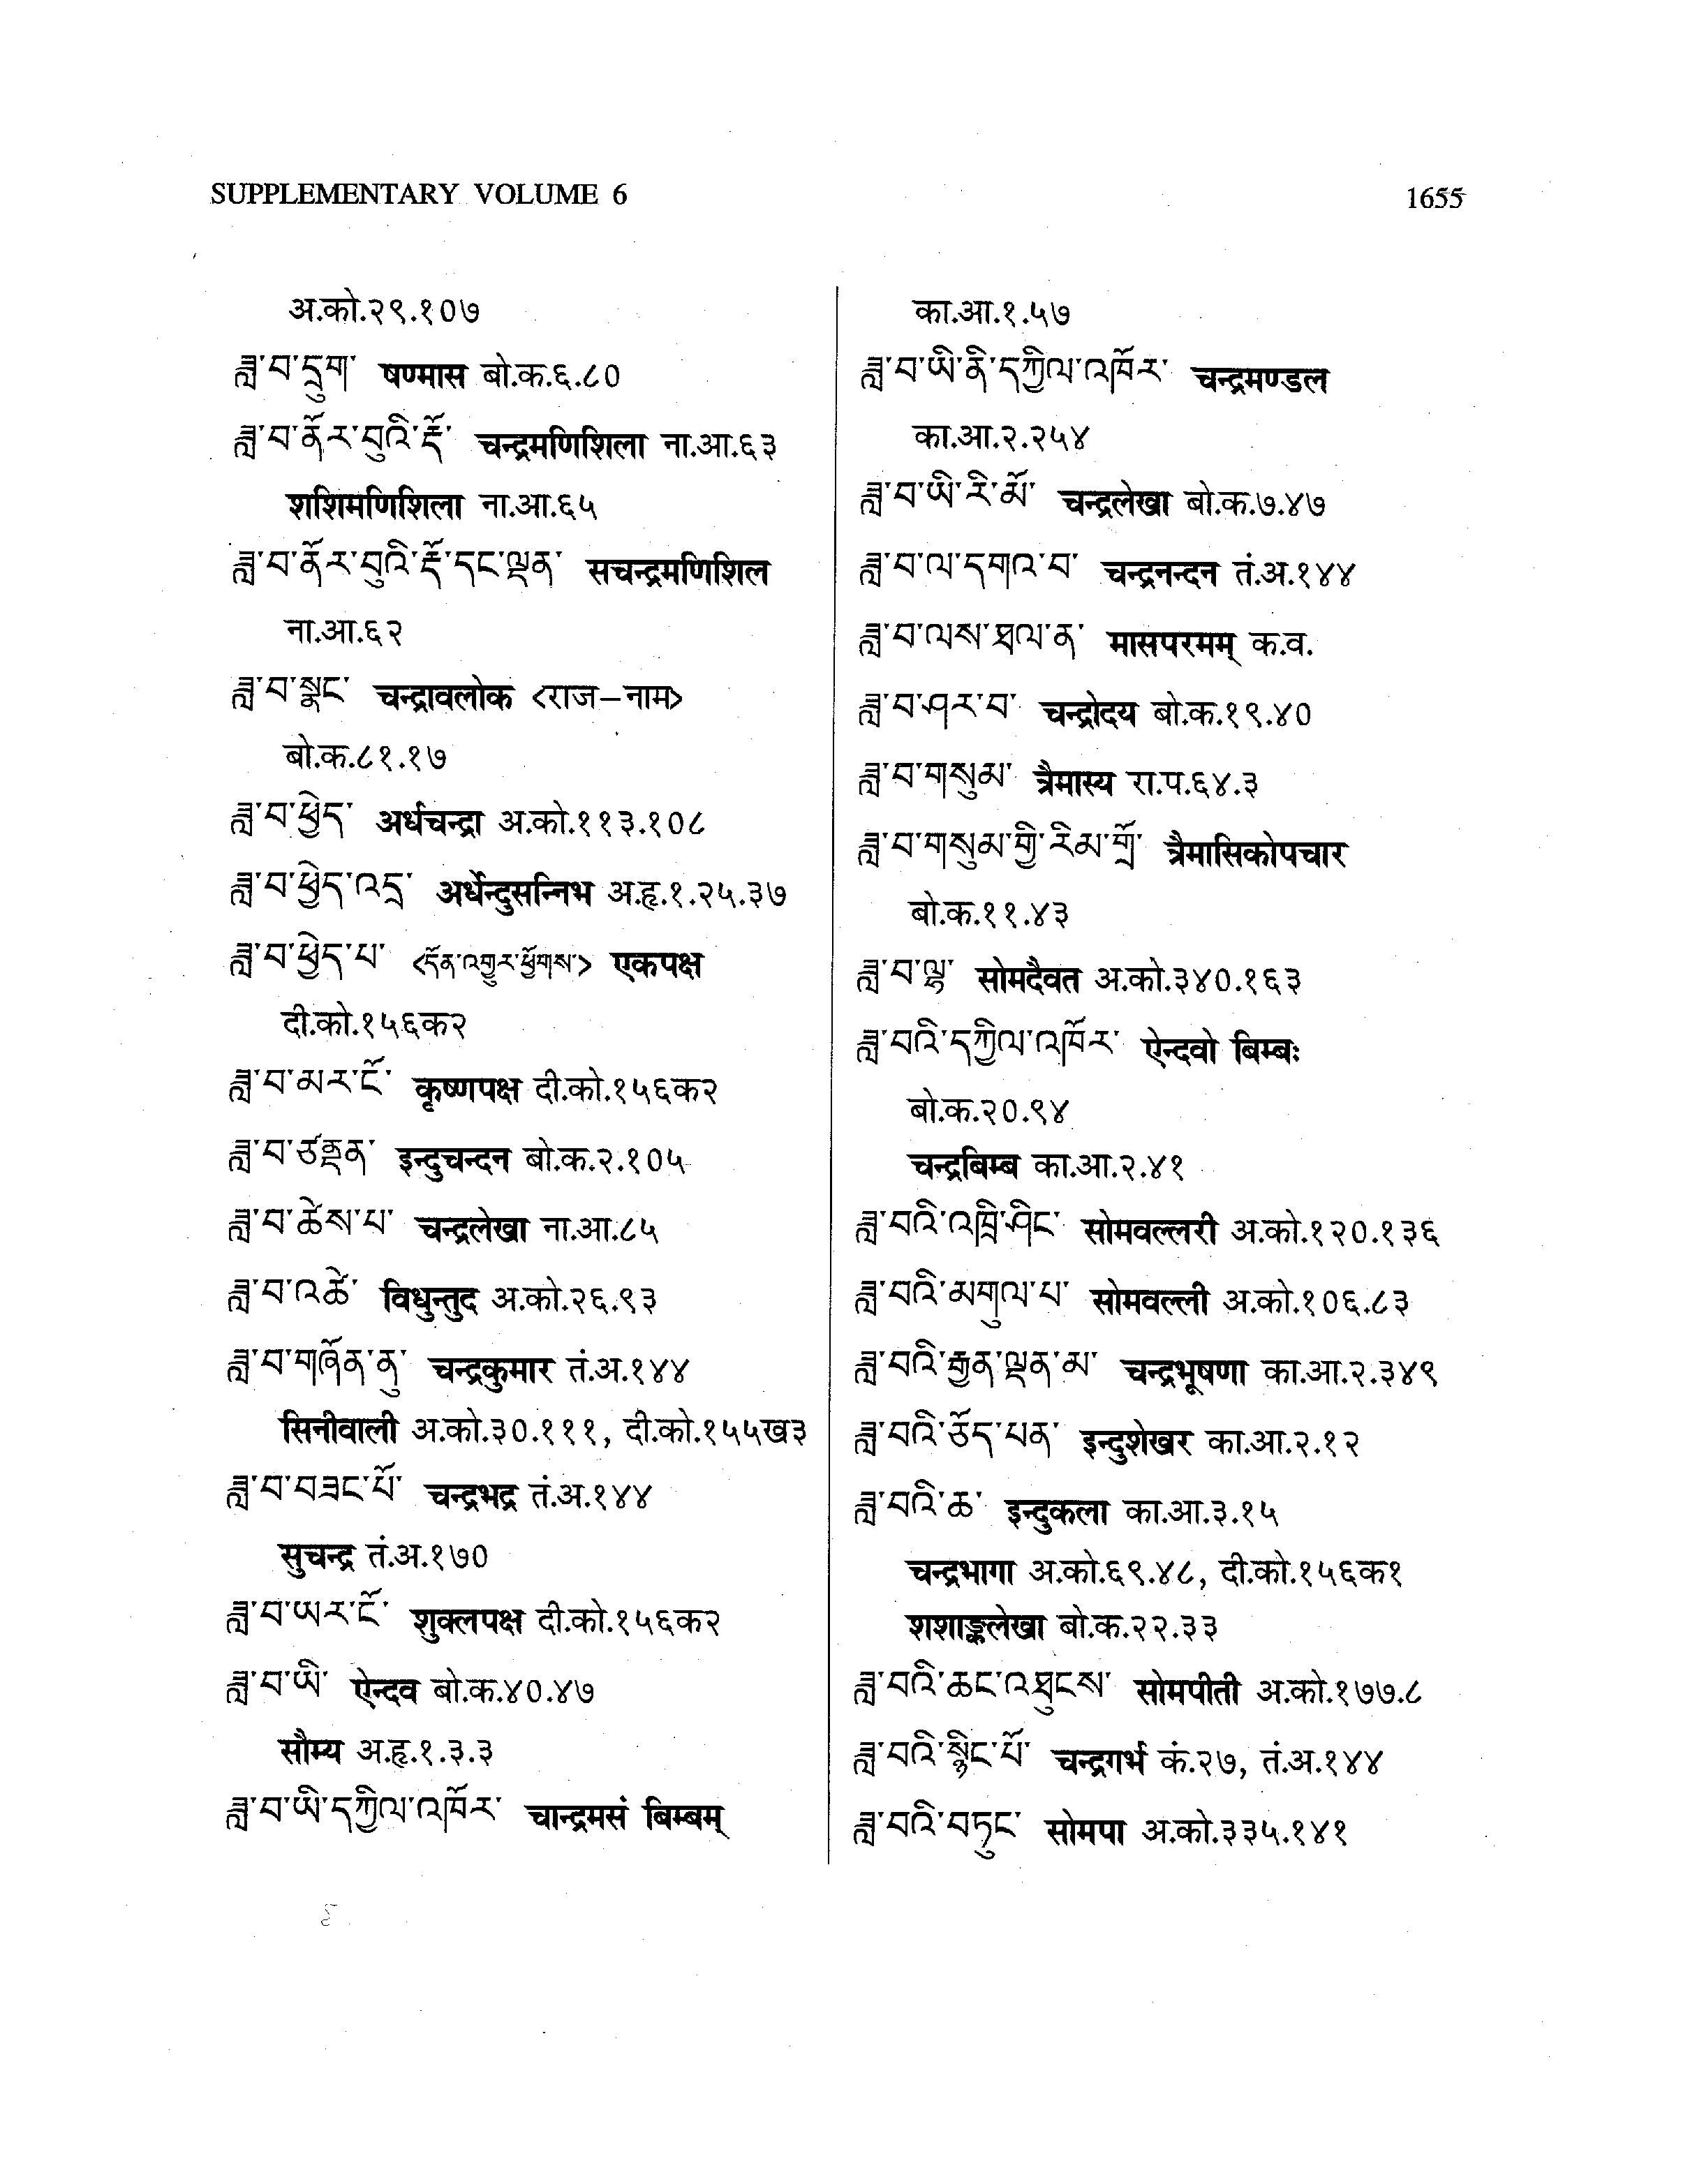 SUPPLEMENTARY VOLUME 6
1655
अ.को.२९.१०७
ཟླ་བ་དྲུག་ षण्मास बो.क.६.८०
ཟླ་བ་ནོར་བུའི་རྡོ་ चन्द्रमणिशिला ना.आ.६३
शशिमणिशिला ना.आ.६५
ཟླ་བ་ནོར་བུའི་རྡོ་དང་ལྡན་ सचन्द्रमणिशिल
ना.आ.६२
ཟླ་བ་སྣང་ चन्द्रावलोक <राज–नाम>
बो.क.८१.१७
ཟླ་བ་ཕྱེད་ अर्धचन्द्रा अ.को.११३.१०८
ཟླ་བ་ཕྱེད་འདྲ་ अर्धेन्दुसन्निभ अ.हृ.१.२५.३७
ཟླ་བ་ཕྱེད་པ་ <དོན་འགྱུར་ཕྱོགས་> एकपक्ष
दी.को.१५६क२
ཟླ་བ་མར་ངོ་ कृष्णपक्ष दी.को.१५६क२
ཟླ་བ་ཙནྡན་ इन्दुचन्दन बो.क.२.१०५
ཟླ་བ་ཚེས་པ་ चन्द्रलेखा ना.आ.८५
ཟླ་བ་འཚེ་ विधुन्तुद अ.को.२६.९३
ཟླ་བ་གཞོན་ནུ་ चन्द्रकुमार तं.अ.१४४
सिनीवाली अ.को.३०.१११, दी.को.१५५ख३
ཟླ་བ་བཟང་པོ་ चन्द्रभद्र तं.अ.१४४
सुचन्द्र तं.अ.१७०
ཟླ་བ་ཡར་ངོ་ शुक्लपक्ष दी.को.१५६क२
ཟླ་བ་ཡི་ ऐन्दव बो.क.४०.४७
सौम्य अ.हृ.१.३.३
ཟླ་བ་ཡི་དཀྱིལ་འཁོར་ चान्द्रमसं बिम्बम्
का.आ.१.५७
ཟླ་བ་ཡི་ནི་དཀྱིལ་འཁོར་ चन्द्रमण्डल
का.आ.२.२५४
ཟླ་བ་ཡི་རི་མོ་ चन्द्रलेखा बो.क.७.४७
ཟླ་བ་ལ་དགའ་བ་ चन्द्रनन्दन तं.अ.१४४
ཟླ་བ་ལས་ཐལ་ན་ मासपरमम् क.व.
ཟླ་བ་ཤར་བ་ चन्द्रोदय बो.क.१९.४०
ཟླ་བ་གསུམ་ त्रैमास्य रा.प.६४.३
ཟླ་བ་གསུམ་གྱི་རིམ་གྲོ་ त्रैमासिकोपचार
बो.क.११.४३
ཟླ་བ་ལྷ་ सोमदैवत अ.को.३४०.१६३
ཟླ་བའི་དཀྱིལ་འཁོར་ ऐन्दवो बिम्बः
बो.क.२०.९४
चन्द्रबिम्ब का.आ.२.४१
ཟླ་བའི་འཁྲི་ཤིང་ सोमवल्लरी अ.को.१२०.१३६
ཟླ་བའི་མགུལ་པ་ सोमवल्ली अ.को.१०६.८३
ཟླ་བའི་རྒྱན་ལྡན་མ་ चन्द्रभूषणा का.आ.२.३४९
ཟླ་བའི་ཅོད་པན་ इन्दुशेखर का.आ.२.१२
ཟླ་བའི་ཆ་ इन्दुकला का.आ.३.१५
चन्द्रभागा अ.को.६९.४८, दी.को.१५६क१
शशाङ्कलेखा बो.क.२२.३३
ཟླ་བའི་ཆང་འཐུངས་ सोमपीती अ.को.१७७.८
ཟླ་བའི་སྙིང་པོ་ चन्द्रगर्भ कं.२७, तं.अ.१४४
ཟླ་བའི་བཏུང་ सोमपा अ.को.३३५.१४१